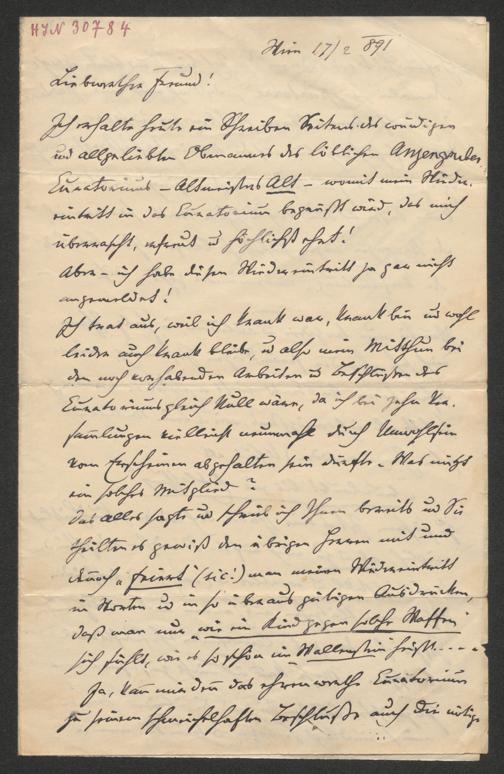 HJN 30784
Wien 17/2 891
Liebwerther Freund!
Ich erhalte heute ein Schreiben Seitens des würdigen
und allgeliebten Obmannes des löblichen Anzengruber-
Curatoriums – Altmeisters Alt – womit mein Wieder-
eintritt in das Curatorium begrüßt wird, das mich
überrascht, erfreut u höchlichst ehrt!
Aber – ich habe diesen Wiedereintritt ja gar nicht
angemeldet!
Ich trat aus, weil ich krank war, krank bin und wohl
leider auch krank bleibe, u also mein Mitthun bei
den noch vorhabenden Arbeiten u Beschlüssen des
Curatoriums gleich Null wäre, da ich bei zehn Ver-
sammlungen vielleicht neunmahl durch Unwohlsein
vom Erscheinen abgehalten sein dürfte. Was nützt
ein solches Mitglied?
Das alles sagte und schrieb ich Ihnen bereits und Sie
theilten es gewiß den übrigen Herren mit und
dennoch „feiert (sic!) man meinen Wiedereintritt
in Worten und in so überaus gütigen Ausdrücken,
daß man nur „wie ein Kind gegen solche Waffen"
sich fühlt, wie es so schön im Wallenstein heißt....
Ja, kann mir denn das ehrenwerthe Curatorium
zu seinem schmeichelhaften Beschluße auch die nötige